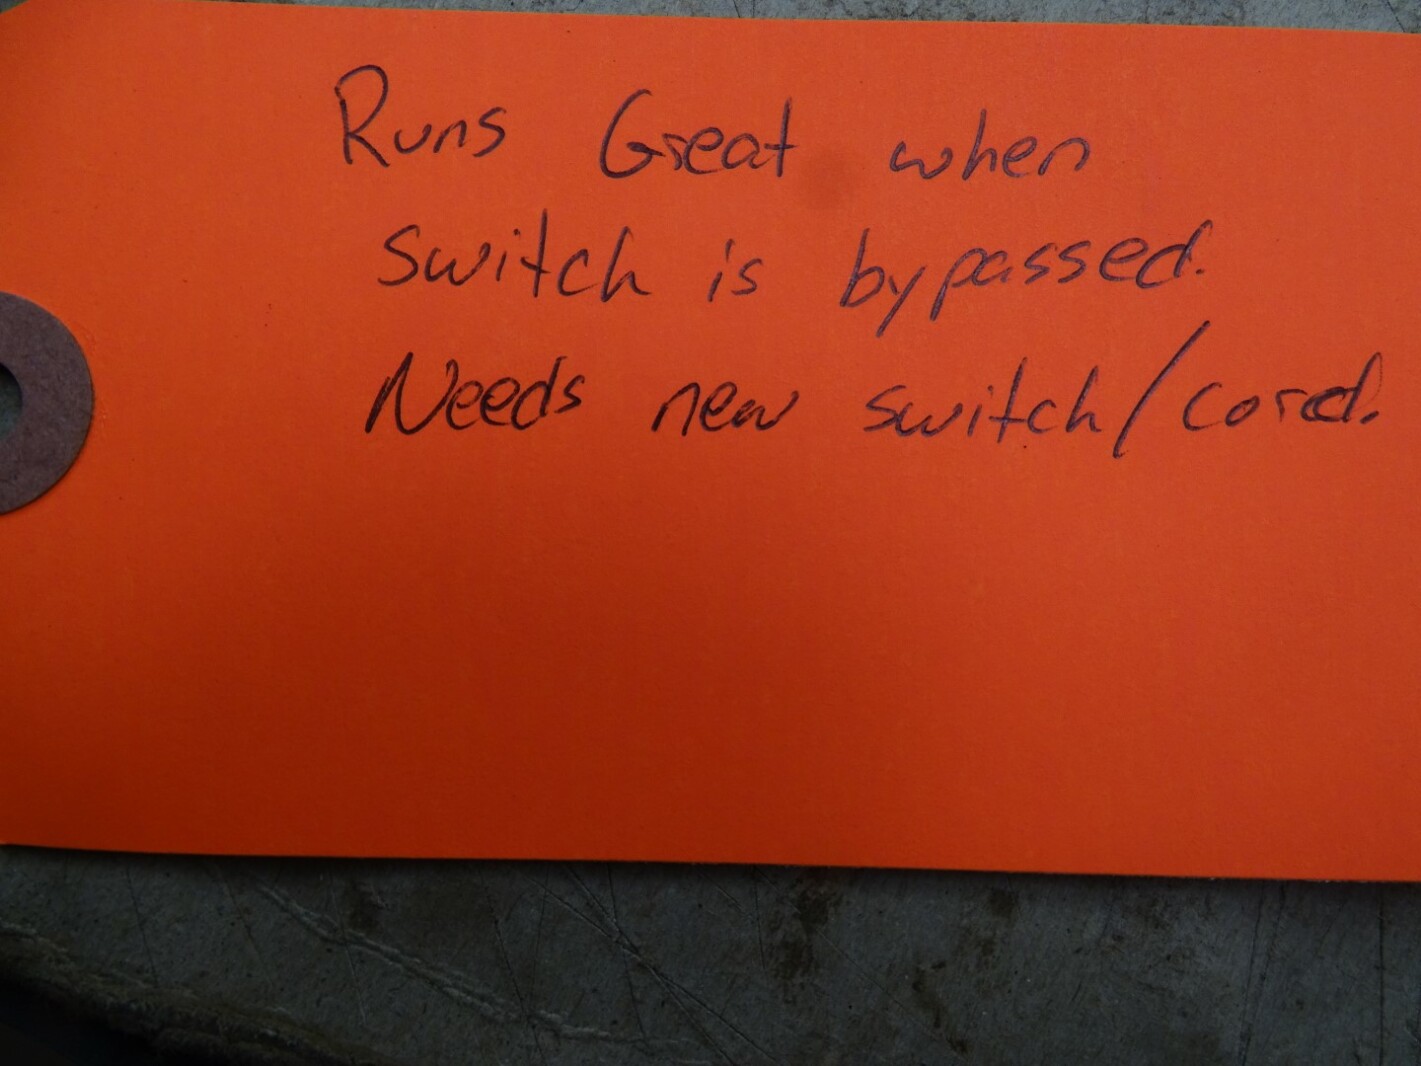 Runs Great when
switch is bypassed.
Needs new switch/cord.